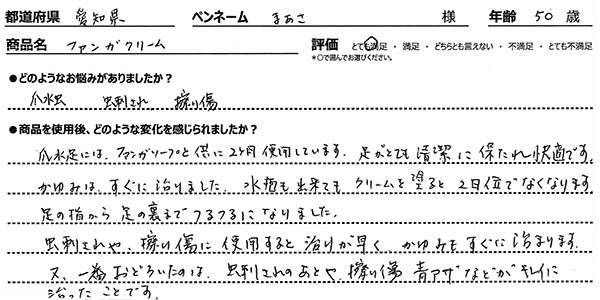 都道府県 愛知県 ペンネーム まあさ 様 年齢 50 歳
商品名 ファンガクリーム 評価 とても満足 ・ 満足 ・ どちらとも言えない ・ 不満足 ・ とても不満足
*○で囲んでお選びください。
●どのようなお悩みがありましたか？
爪水虫 虫刺され 擦り傷
●商品を使用後、どのような変化を感じられましたか？
爪水足には、ファンガソープと供に2ヶ月使用しています。足がとても清潔に保たれ快適です。
かゆみは、すぐに治りました。水疱も出来てもクリームを塗ると2日位でなくなります。
足の指から足の裏までつるつるになりました。
虫刺されや、擦り傷に使用すると治りが早く、かゆみもすぐに治まります。
又、一番おどろいたのは、虫刺されのあとや、擦り傷 青アザなどがキレイに
治ったことです。